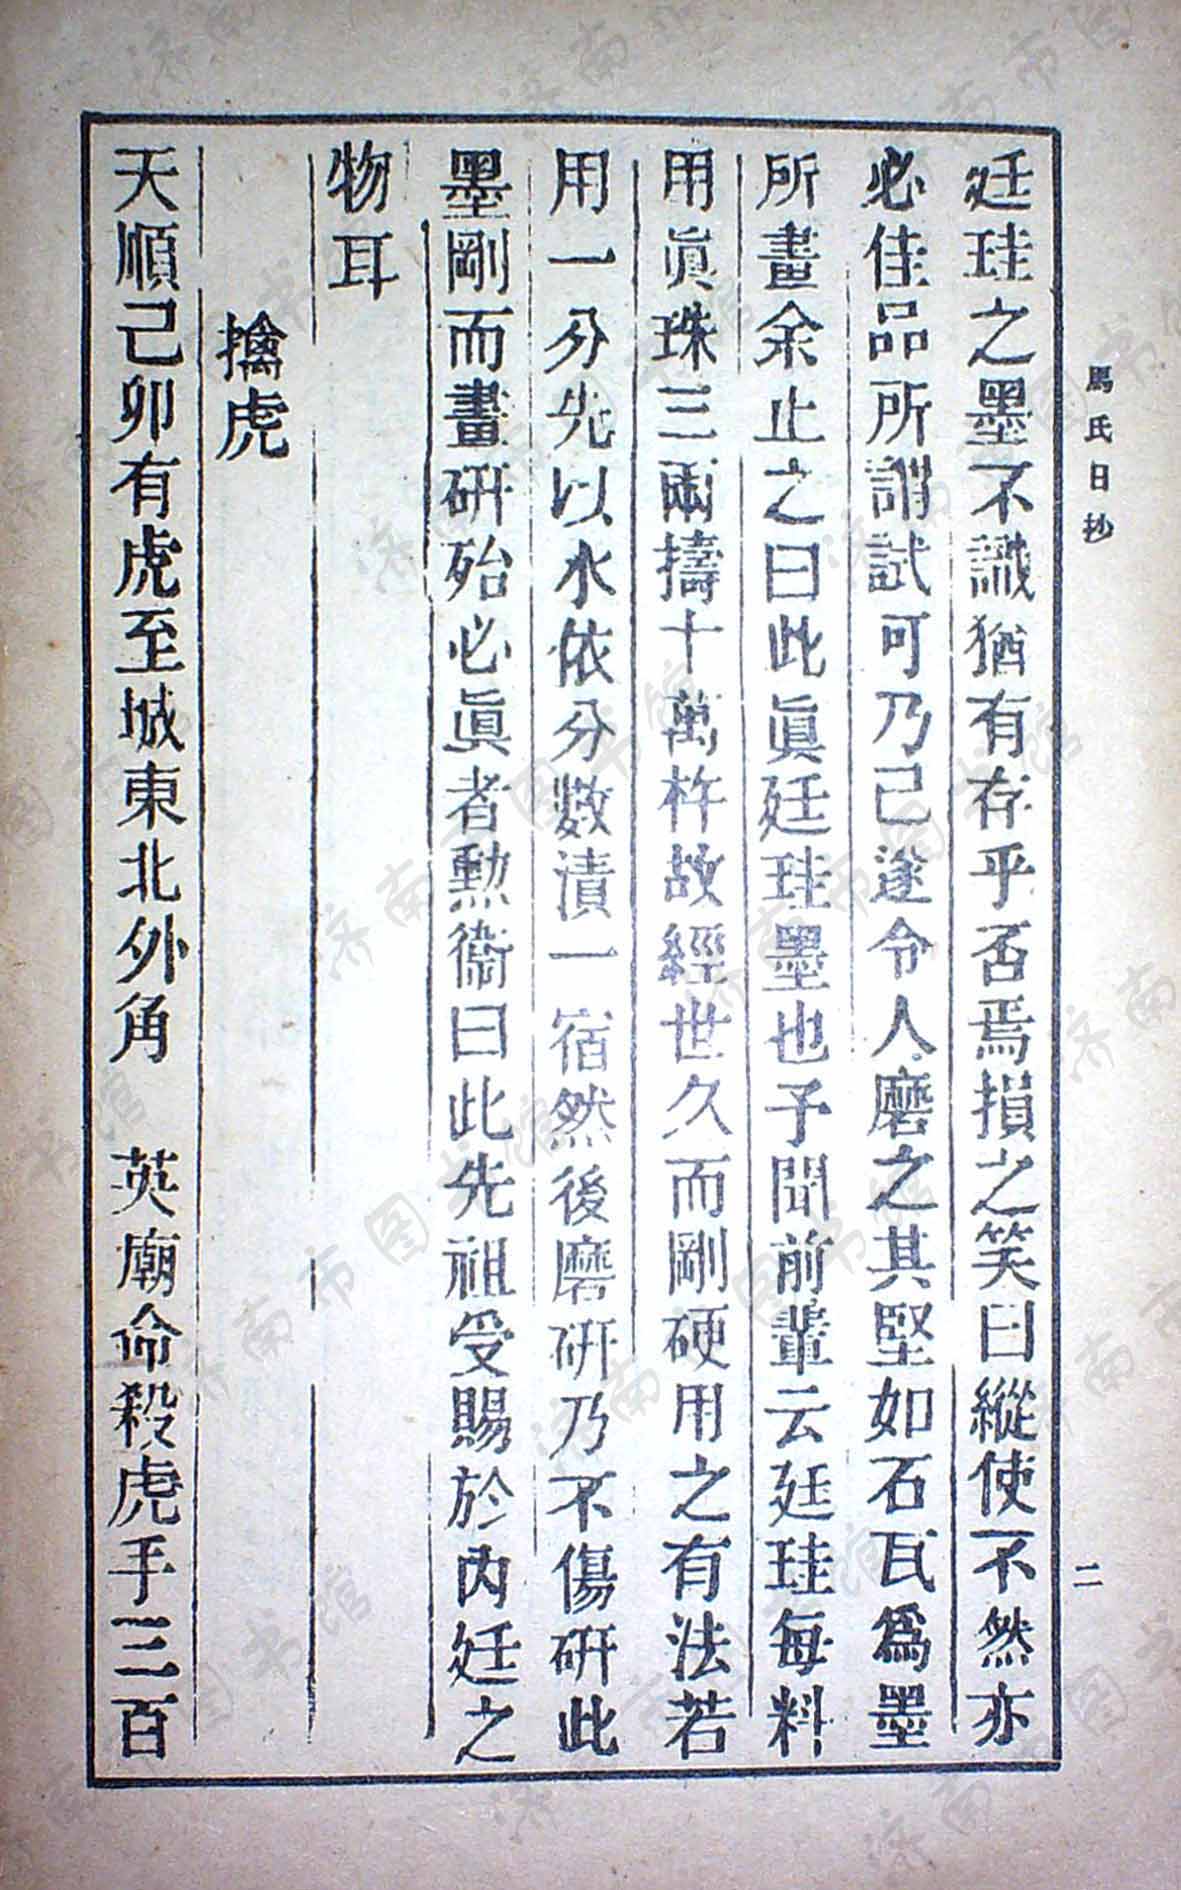 馬氏日抄
二
廷珪之墨不識猶有存乎否焉損之笑曰縱使不然亦
必佳品所謂試可乃己遂令人磨之其堅如石瓦爲墨
所畫余止之曰此眞廷珪墨也予聞前輩云廷珪每料
用眞珠三兩擣十萬杵故經世久而剛硬用之有法若
用一分先以水依分數漬一宿然後磨硏乃不傷硏此
墨剛而畫硏殆必眞者勳衞曰此先祖受賜於內廷之
物耳
擒虎
天順己卯有虎至城東北外角 英廟命殺虎手三百
济南市图书馆